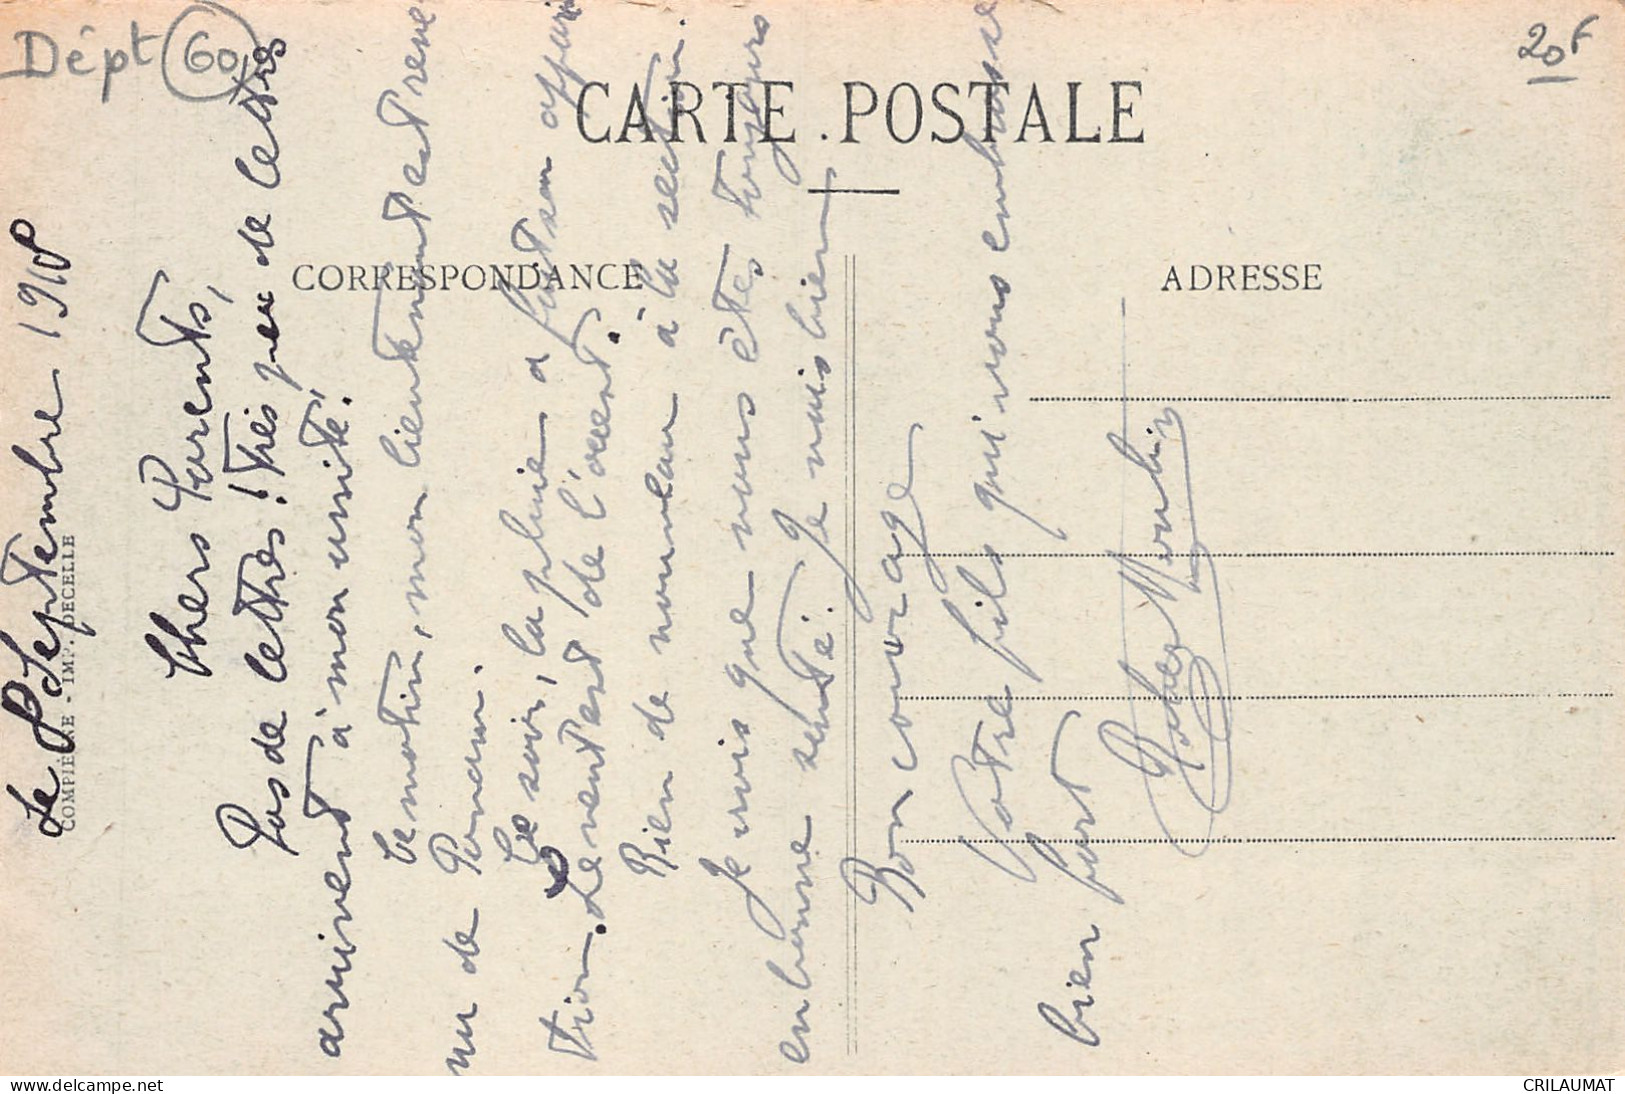 Dépt 60
20F
CARTE POSTALE
CORRESPONDANCE
ADRESSE
COMPIÈGNE - IMP. DECELLE
Le 8 Septembre 1918
Chers Parents,
Pas de lettres! Très peu de lettres
arrivent à mon unité!
Ce matin, mon lieutenant est reve
nu de Permi.
Ce soir, la pluie a fait son appari
tion. Le vent est de l'ouest.
Rien de nouveau à la section.
Je crois que vous êtes toujours
en bonne santé. Je vais bien
Bon courage
Votre fils qui vous embrasse
bien fort